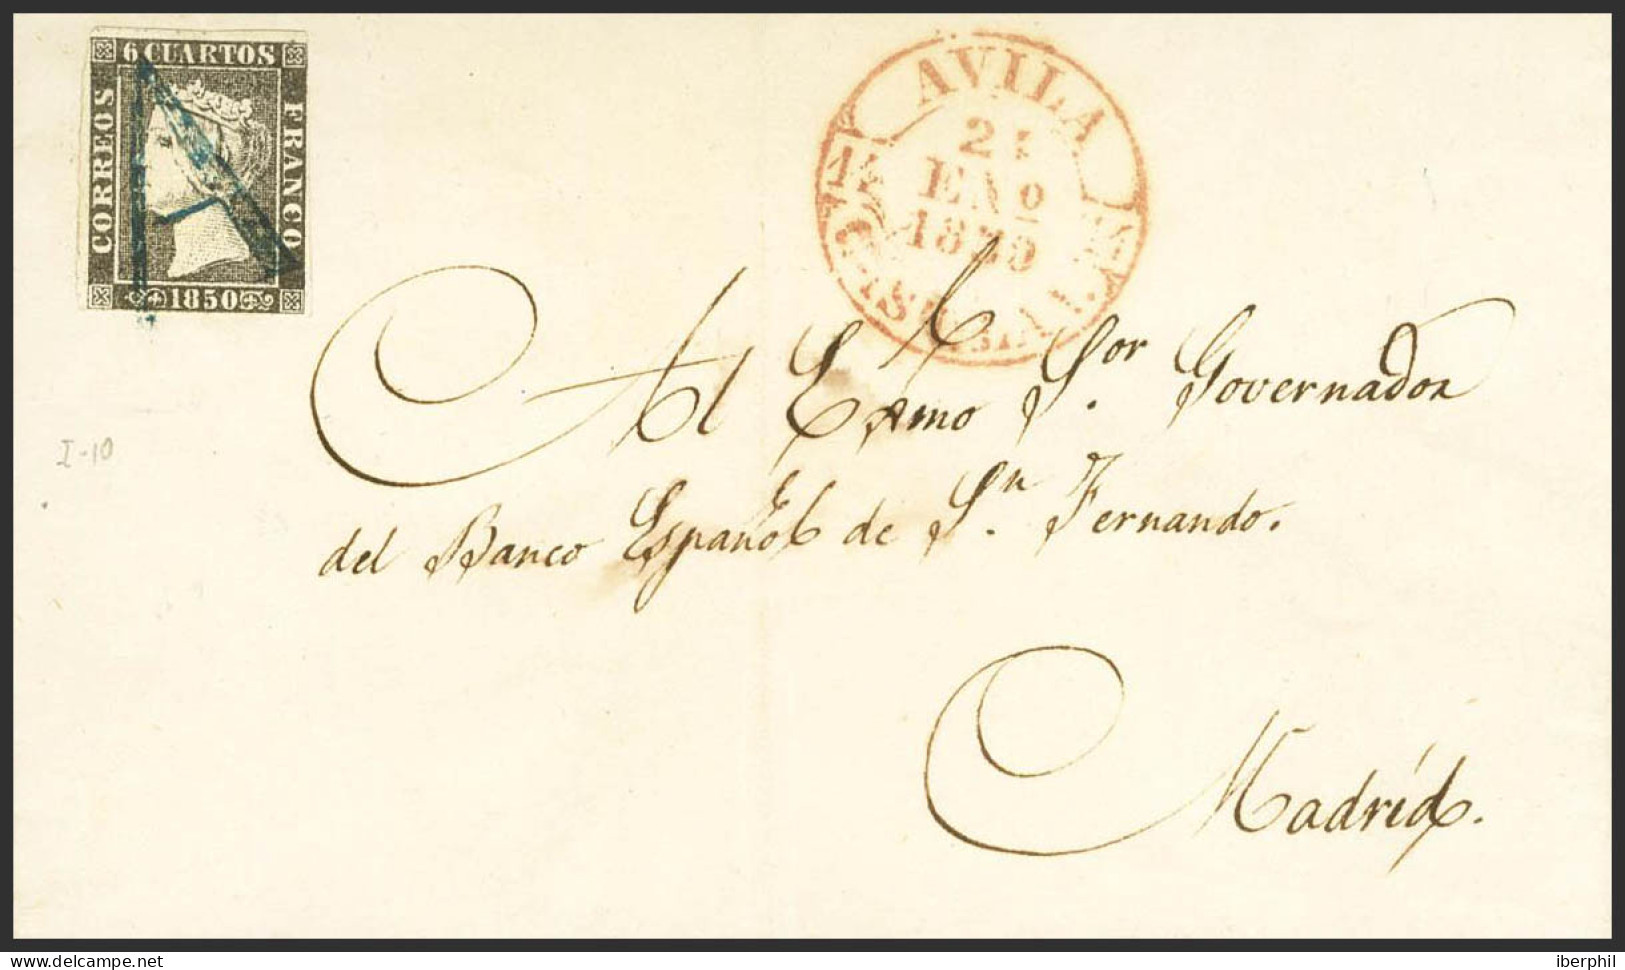 6 CUARTOS
CORREOS
FRANCO
1850
AVILA
21
ENº
1850
CASTILLA LA V.
I-10
Al Exmo Sºr Governador
del Banco Español de Sn Fernando.
Madrid.
delcampe.net
iberphil